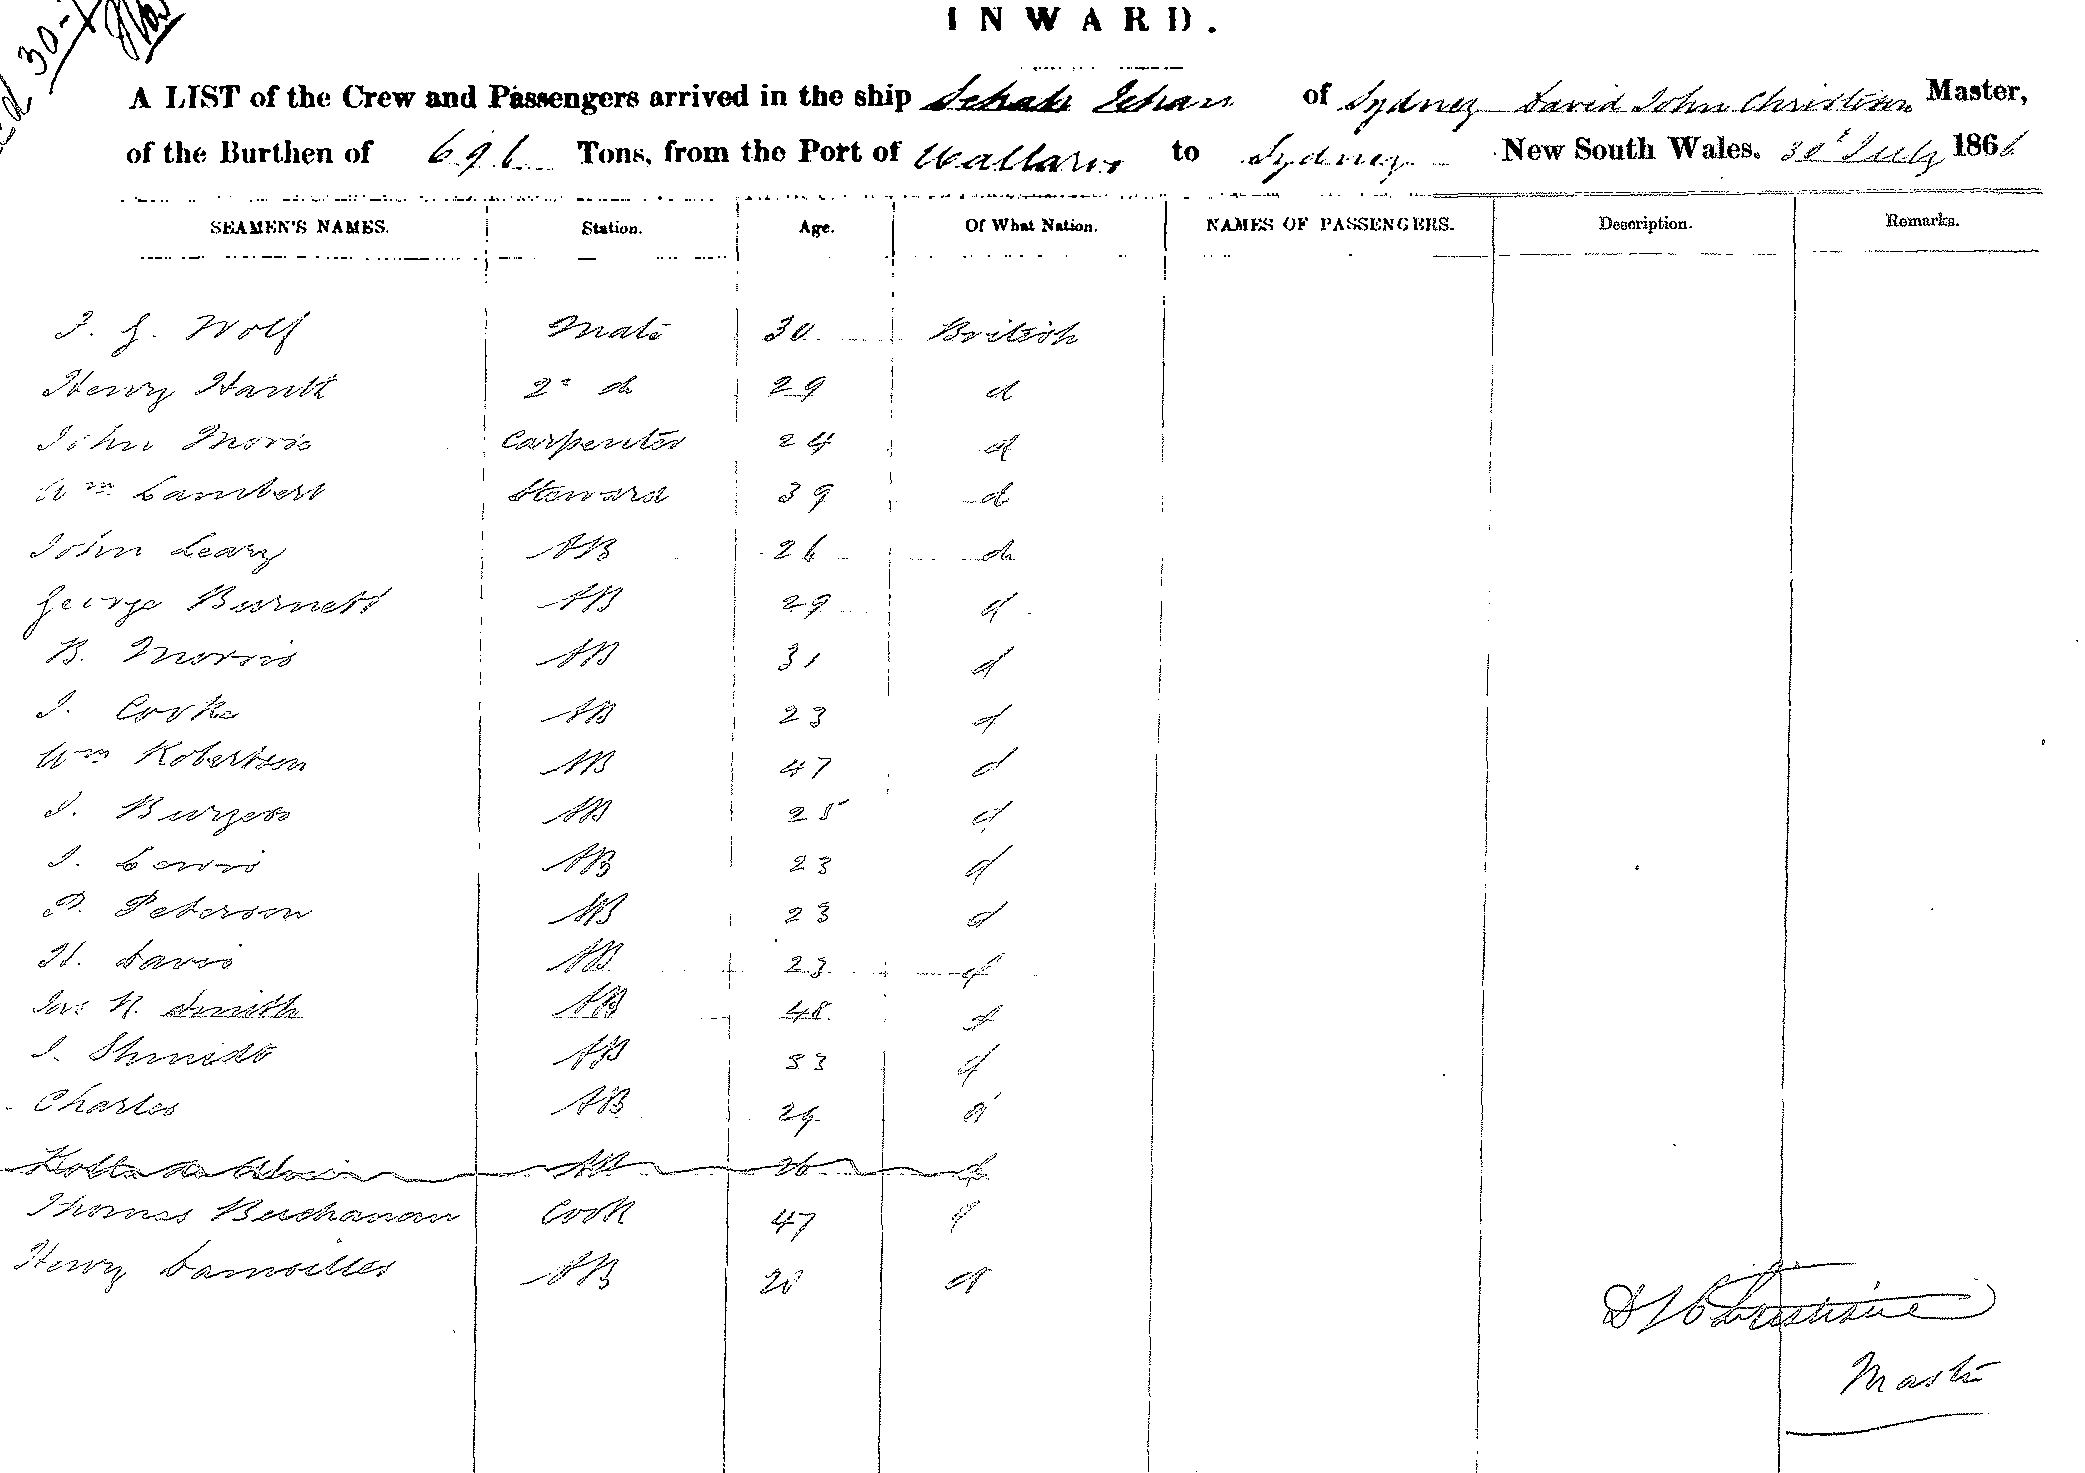 INWARD.
A LIST of the Crew and Passengers arrived in the ship Schah Jehan of Sydney David John Christian Master,
of the Burthen of 696 Tons, from the Port of Wallaroo to Sydney New South Wales. 30t July 1866
SEAMEN'S NAMES. Station. Age. Of What Nation. NAMES OF PASSENGERS. Description. Remarks.
J. G. Wolf Mate 30 British
Henry Hanth 2d do 29 d
John Moris Carpenter 24 d
Wm Lambert Steward 39 d
John Leary AB 26 do
George Burnett AB 29 d
B. Morris AB 31 d
J. Cooke AB 23 d
Wm Robertson AB 47 d
J. Burgess AB 25 d
J. Lewis AB 23 d
P. Peterson AB 23 d
H. Davis AB 23 d
Jas N. Smith AB 48 d
J. Shmidt AB 33 d
Charles AB 29 d
AB 26 d
Thomas Buchanan Cook 47 d
Henry Damoilles AB 20 d
D J Christian
Master